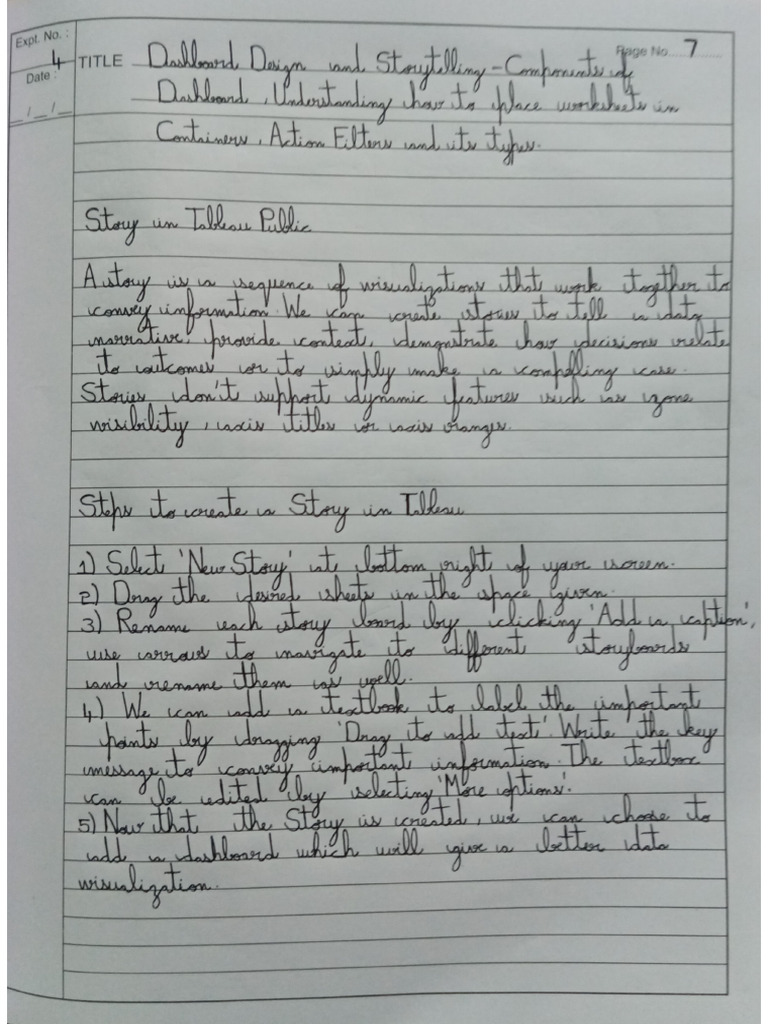 Expt. No. :
4
Date :
_/_/_
Page No. 7
TITLE Dashboard Design and Storytelling - Components of
Dashboard, Understanding how to place worksheets in
Containers, Action Filters and its types.
Story in Tableau Public
A story is a sequence of visualizations that work together to
convey information. We can create stories to tell a data
narrative, provide context, demonstrate how decisions relate
to outcomes or to simply make a compelling case.
Stories don't support dynamic features such as zone
visibility, axis titles or axis ranges.
Steps to create a Story in Tableau
1) Select 'New Story' at bottom right of your screen.
2) Drag the desired sheets in the space given.
3) Rename each story board by clicking 'Add a caption',
use arrows to navigate to different storyboards
and rename them as well.
4) We can add a textbook to label the important
points by dragging 'Drag to add text'. Write the key
message to convey important information. The textbox
can be edited by selecting 'More options'.
5) Now that the Story is created, we can choose to
add a dashboard which will give a better data
visualization.